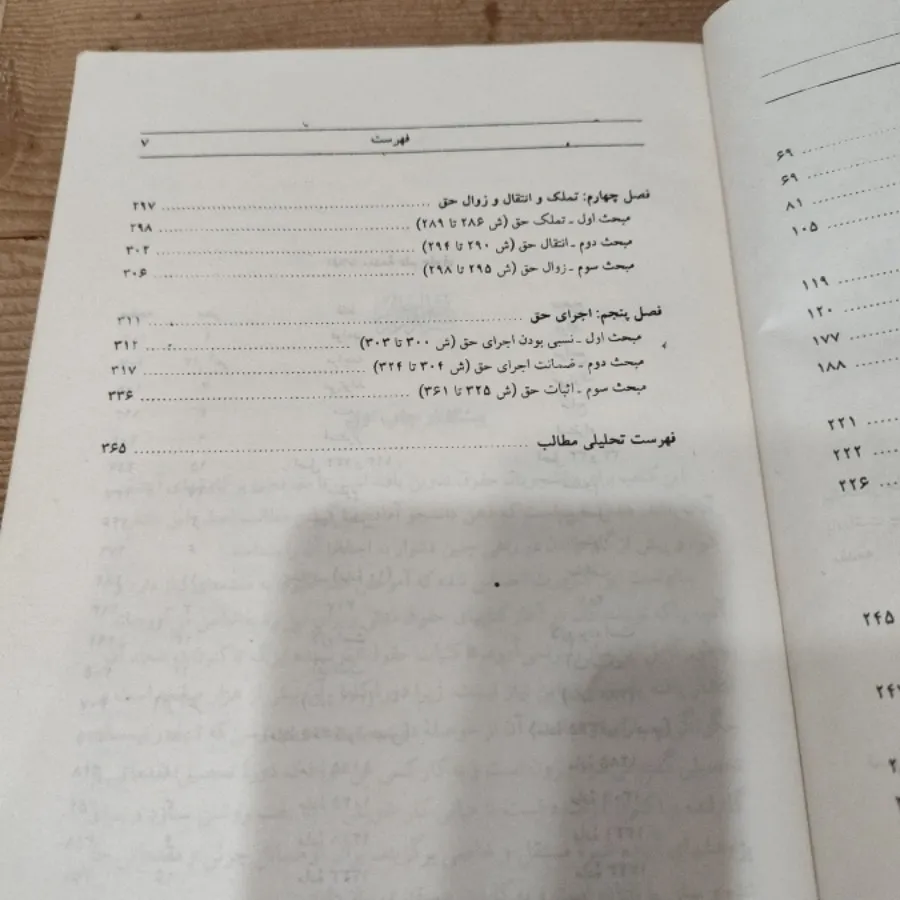 فهرست ۷
فصل چهارم: تملک و انتقال و زوال حق ........ ۲۹۷
مبحث اول ـ تملک حق (ش ۲۸۶ تا ۲۸۹) ........ ۲۹۸
مبحث دوم ـ انتقال حق (ش ۲۹۰ تا ۲۹۴) ........ ۳۰۲
مبحث سوم ـ زوال حق (ش ۲۹۵ تا ۲۹۸) ........ ۳۰۶
فصل پنجم: اجرای حق ........ ۳۱۱
مبحث اول ـ نسبی بودن اجرای حق (ش ۳۰۰ تا ۳۰۳) ........ ۳۱۲
مبحث دوم ـ ضمانت اجرای حق (ش ۳۰۴ تا ۳۲۴) ........ ۳۱۷
مبحث سوم ـ اثبات حق (ش ۳۲۵ تا ۳۶۱) ........ ۳۳۶
فهرست تحلیلی مطالب ........ ۳۶۵
۶۹
۶۹
۸۱
۱۰۵
۱۱۹
۱۲۰
۱۷۷
۱۸۸
۲۲۱
۲۲۲
۲۲۶
۲۴۵